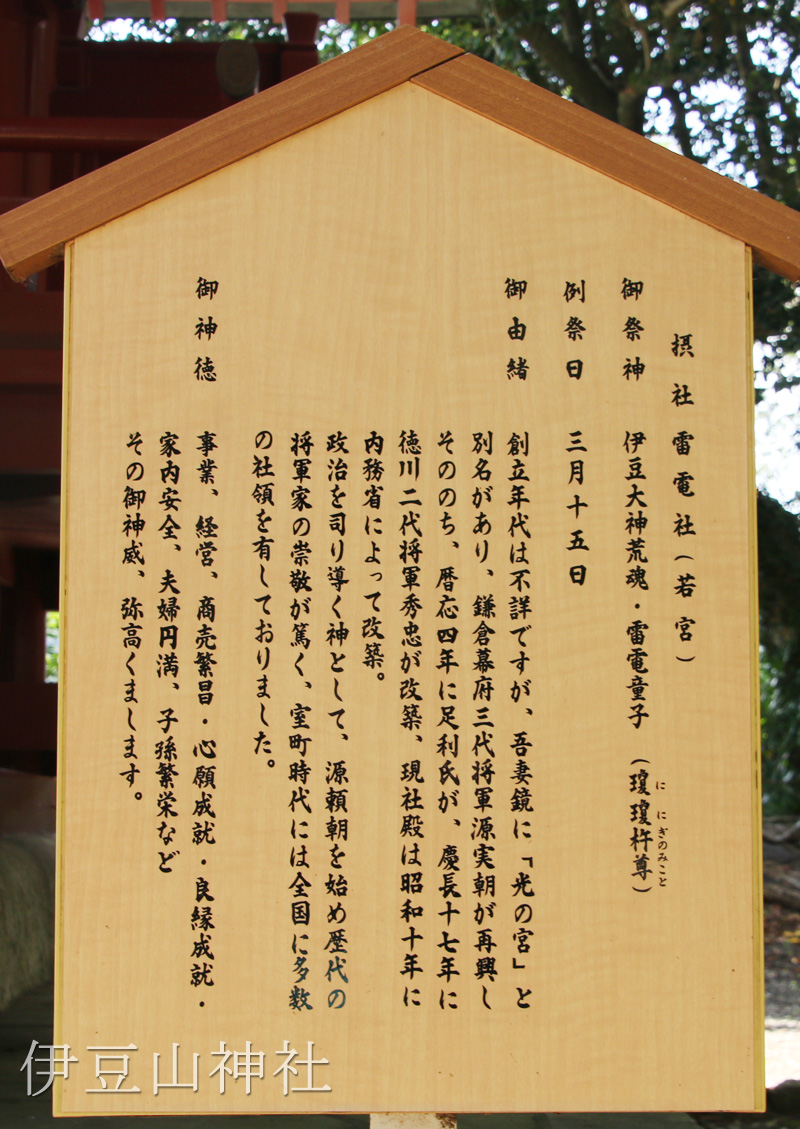 摂社 雷電社(若宮)
御祭神 伊豆大神荒魂・雷電童子 (瓊瓊杵尊)
に にぎのみこと
例祭日 三月十五日
御由緒 創立年代は不詳ですが、吾妻鏡に「光の宮」と
別名があり、鎌倉幕府三代将軍源実朝が再興し
そののち、暦応四年に足利氏が、慶長十七年に
徳川二代将軍秀忠が改築、現社殿は昭和十年に
内務省によって改築。
政治を司り導く神として、源頼朝を始め歴代の
将軍家の崇敬が篤く、室町時代には全国に多数
の社領を有しておりました。
御神徳 事業、経営、商売繁昌・心願成就・良縁成就・
家内安全、夫婦円満、子孫繁栄など
その御神威、弥高くまします。
伊豆山神社